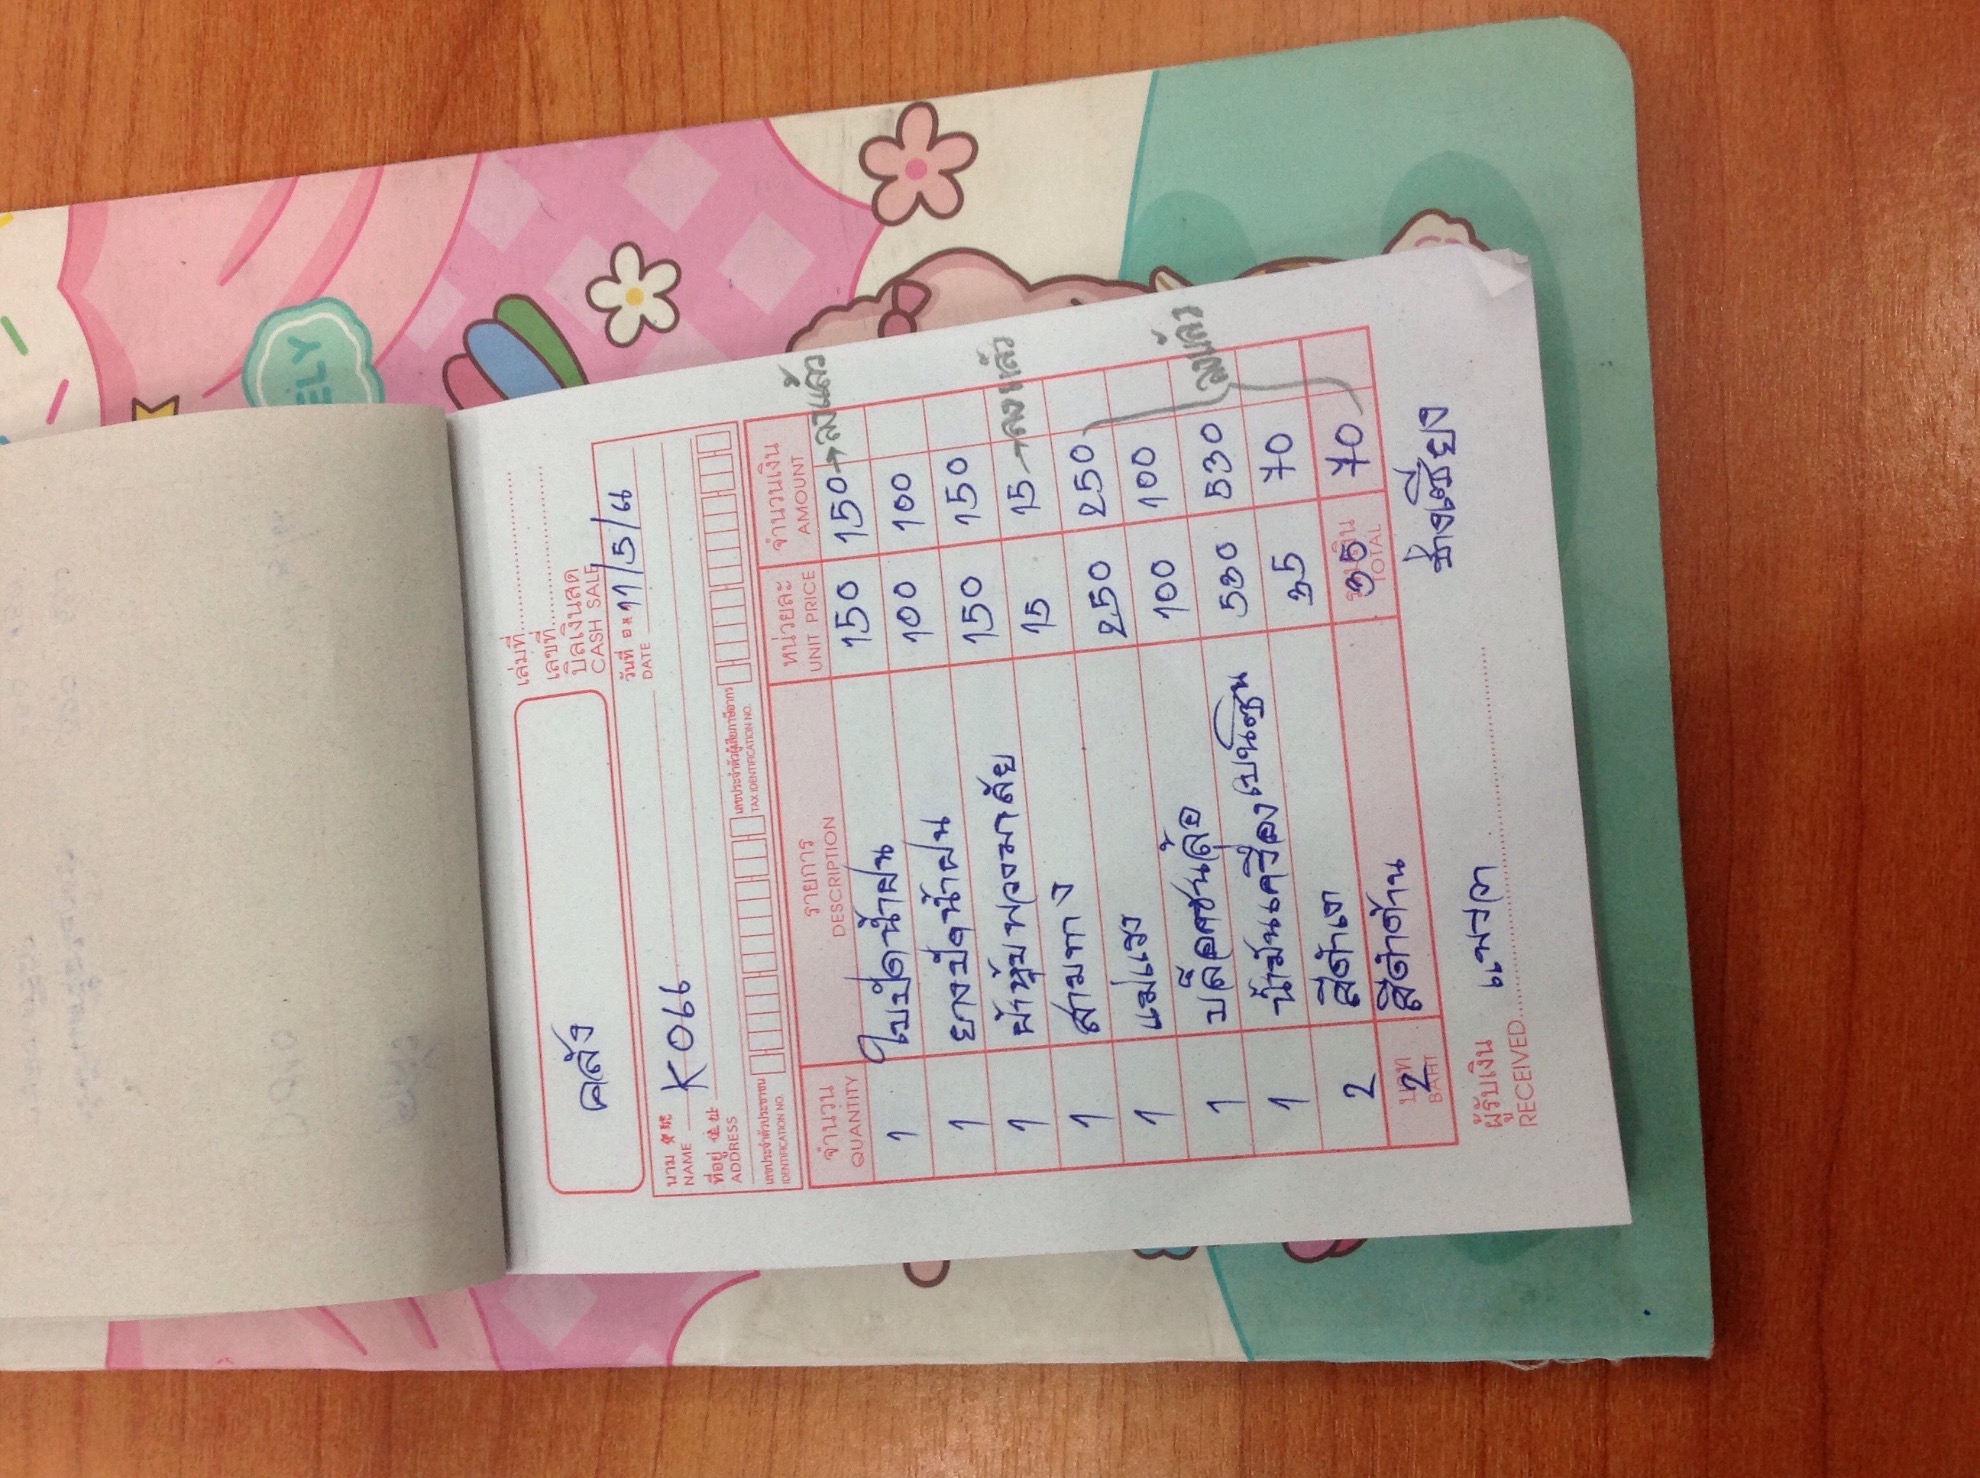 ELY
เล่มที่
เลขที่
บิลเงินสด
CASH SALE
คลัง
วันที่ 11/5/64
DATE
นาม K066
NAME
ที่อยู่ 住址
ADDRESS
เลขประจำตัวประชาชน เลขประจำตัวผู้เสียภาษีอากร
IDENTIFICATION NO. TAX IDENTIFICATION NO.
จำนวน รายการ หน่วยละ จำนวนเงิน
QUANTITY DESCRIPTION UNIT PRICE AMOUNT
1 ใบปัดน้ำฝน 150 150 → ลงแล้ว
1 ยางปัดน้ำฝน 100 100
1 ผ้าหุ้มพวงมาลัย 150 150
1 สามทาง 15 15 → ลงแล้ว
1 แม่แรง 250 250
1 บล็อกชนลุ้ย 100 100
1 น้ำมันเครื่องเบนซิน 530 530 ลงแล้ว
2 สีดำเงา 35 70
2 สีดำด้าน 35 70
บาท รวมเงิน
BAHT TOTAL
ช่างเชียง
ผู้รับเงิน
RECEIVED